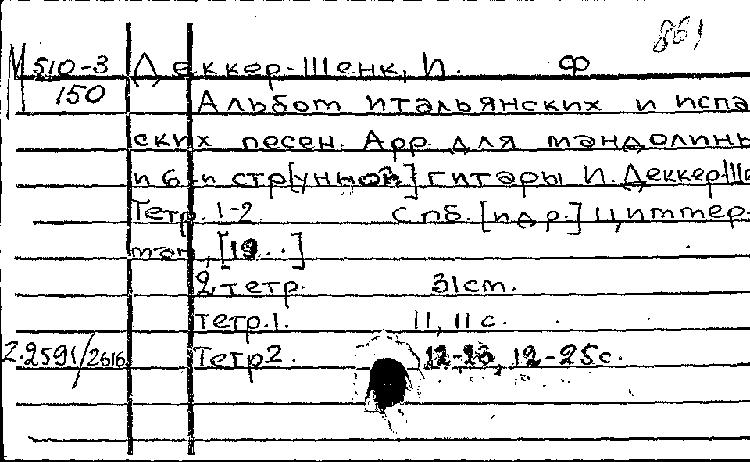 861
М 510-3 Деккер-Шенк, И. Ф
150 Альбом итальянских и испа
ских песен. Арр. для мандолины
и 6-и стр[унной] гитары И. Деккер-Ше
Тетр. 1-2 СПб. [и др.] Циммер-
ман, [19..]
2 тетр. 31 см.
Тетр. 1. 11, 11 с.
2.2591/2616 Тетр 2. 12-23, 12-25 с.